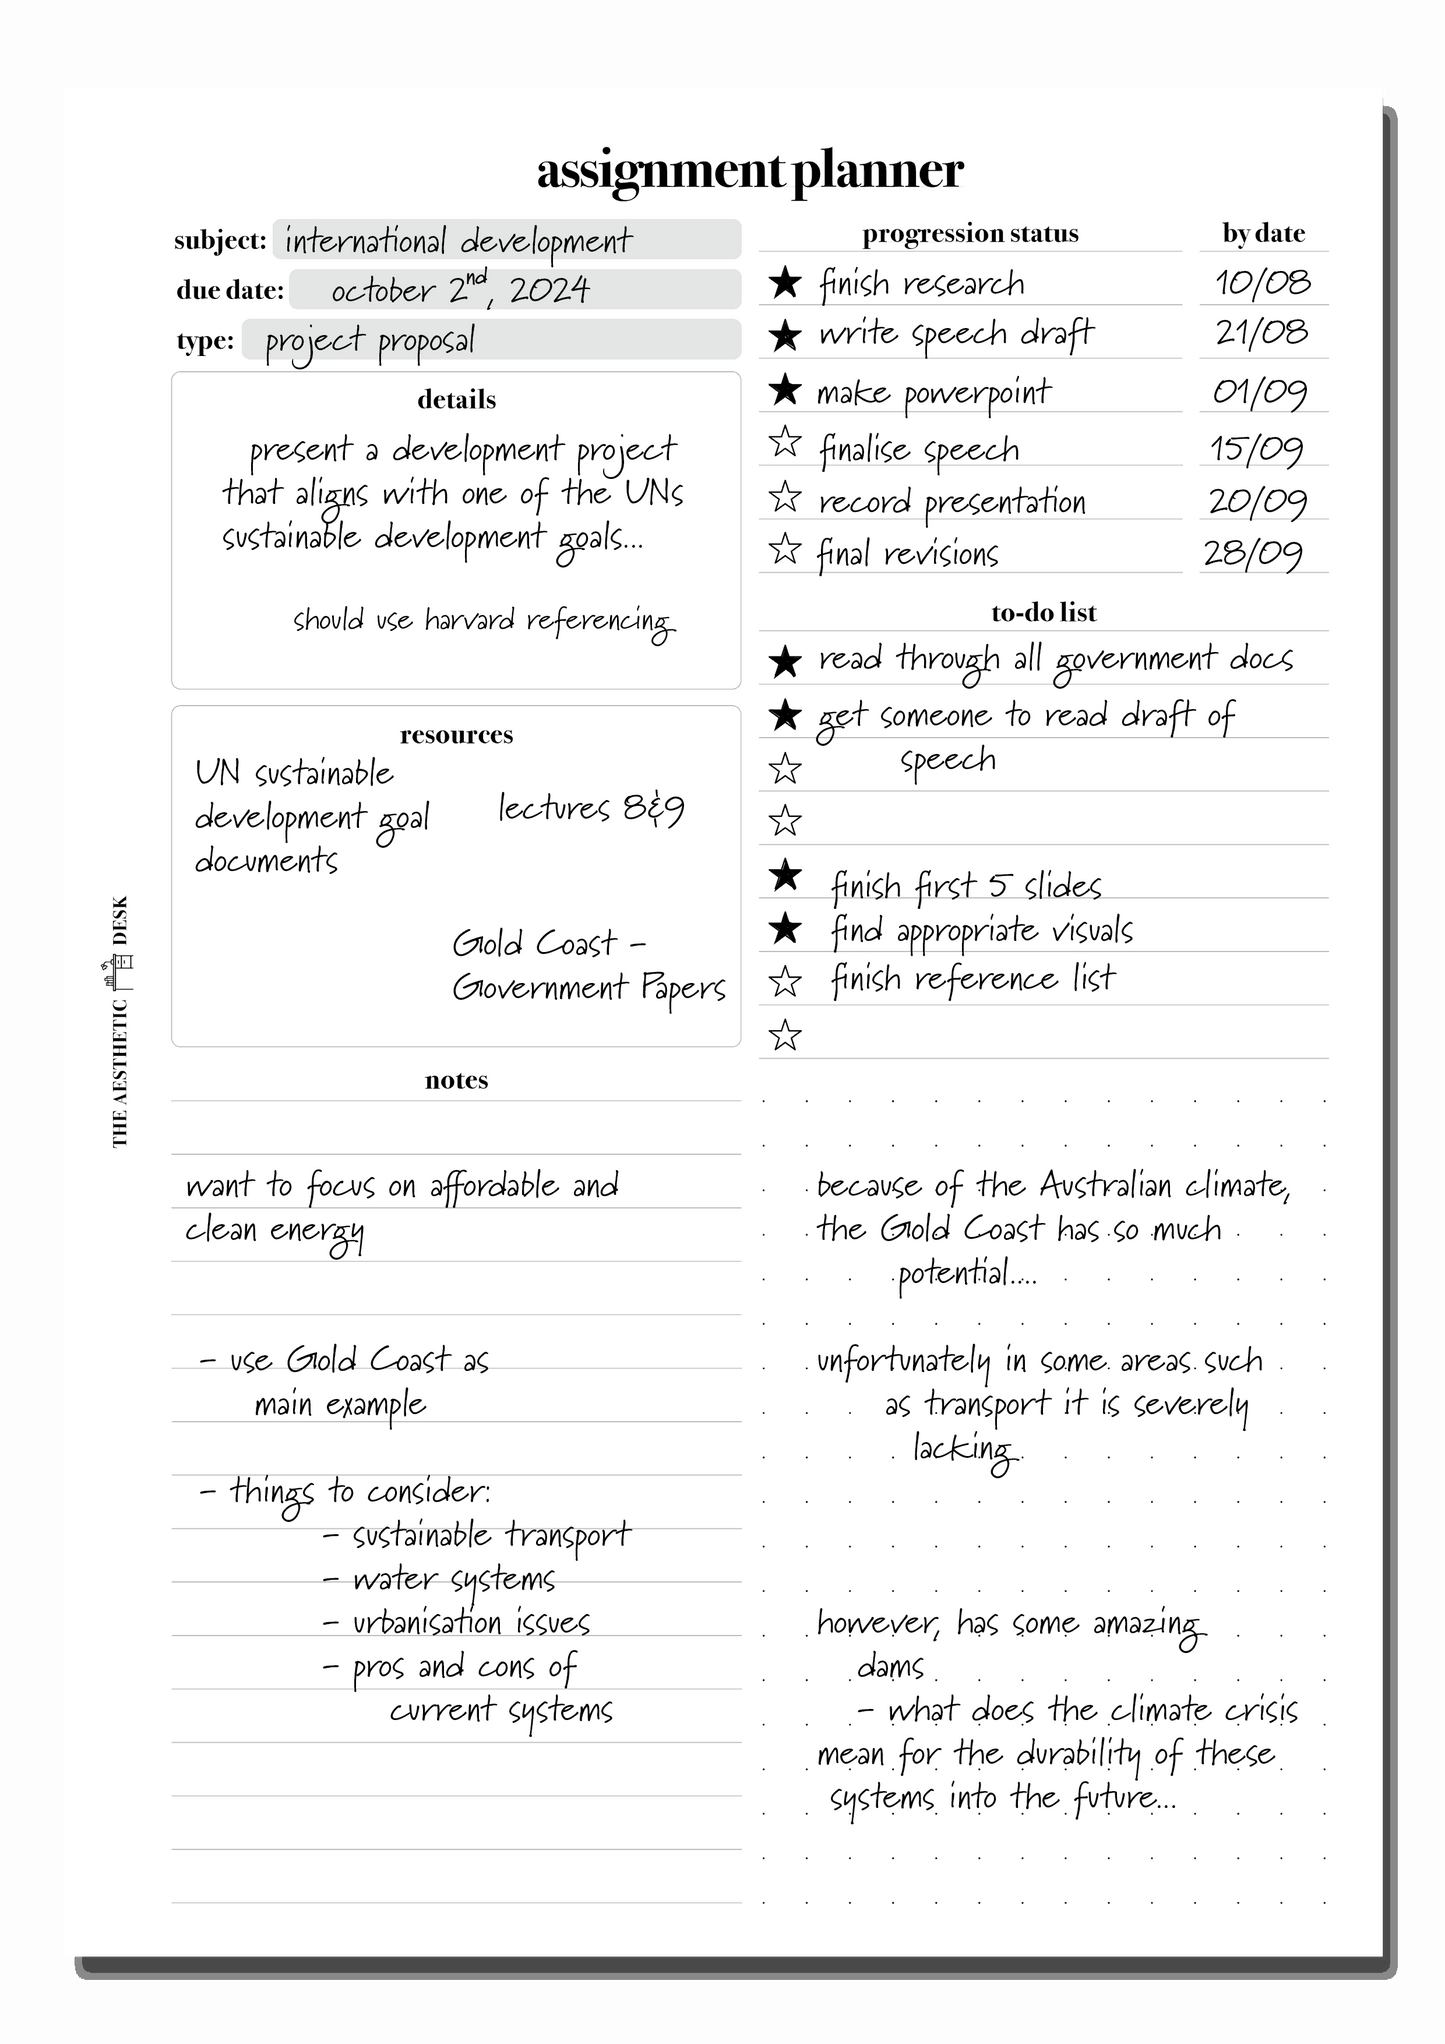 assignment planner
subject: international development
due date: october 2nd, 2024
type: project proposal
details
present a development project
that aligns with one of the UNs
sustainable development goals...
should use harvard referencing
resources
UN sustainable
development goal
documents
lectures 8&9
Gold Coast -
Government Papers
progression status by date
★ finish research 10/08
★ write speech draft 21/08
★ make powerpoint 01/09
☆ finalise speech 15/09
☆ record presentation 20/09
☆ final revisions 28/09
to-do list
★ read through all government docs
★ get someone to read draft of
☆ speech
☆
★ finish first 5 slides
★ find appropriate visuals
☆ finish reference list
☆
THE AESTHETIC DESK
notes
want to focus on affordable and
clean energy
- use Gold Coast as
main example
- things to consider:
- sustainable transport
- water systems
- urbanisation issues
- pros and cons of
current systems
because of the Australian climate,
the Gold Coast has so much
potential....
unfortunately in some areas such
as transport it is severely
lacking
however, has some amazing
dams
- what does the climate crisis
mean for the durability of these
systems into the future...